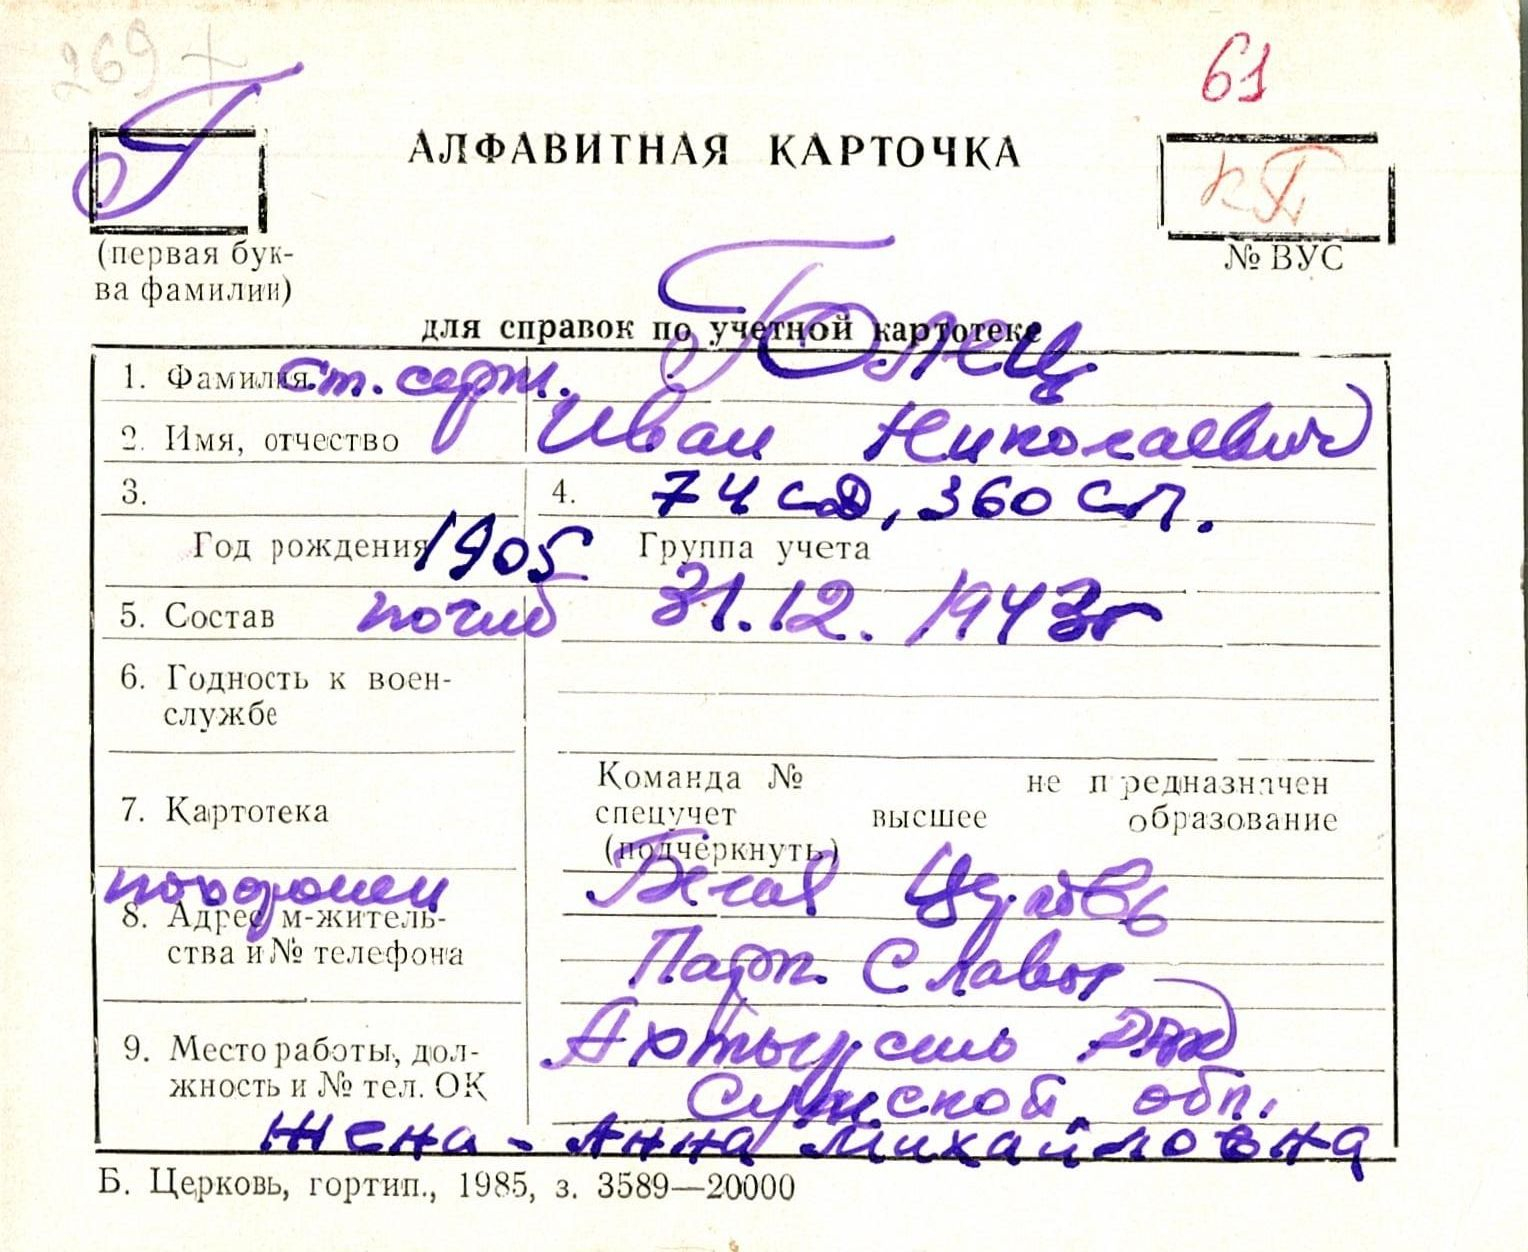 269 +
61
Г
АЛФАВИТНАЯ КАРТОЧКА
КП
(первая бук-
ва фамилии)
№ ВУС
для справок по учетной картотеке
Голец
1. Фамилия ст. серж.
2. Имя, отчество Иван Николаевич
3. 4. 74 сд, 360 сп.
Год рождения 1905 Группа учета
5. Состав погиб 31.12.1943г
6. Годность к воен-
службе
7. Картотека
Команда № не предназначен
спецучет высшее образование
(подчеркнуть)
похоронен Белая Церковь
8. Адрес м-житель-
ства и № телефона
Парк Славы
9. Место работы, дол-
жность и № тел. ОК
Ахтырский РВК
Сумской обл.
Жена - Анна Михайловна
Б. Церковь, гортип., 1985, з. 3589—20000